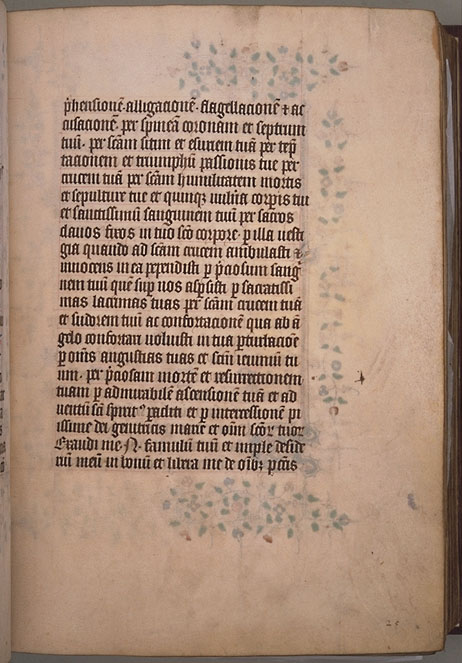 p̄hensionē alligacionē flagellacionē ⁊ ac
cusacionē per spineā coronam et septrum
tuū per scām sitim et esuriem tuā per
tacionem et triumphū passionis tue per
crucem tuā per scām humilitatem mortis
et sepulture tue et quinqꝫ corpis tui
et sanctissimū sanguinem tuū per sacros
clauos fixos in tuo scō corpore ꝑ illa
gia quando ad scām crucem ambulasti ⁊
innocens in ea pependisti ꝑ p̄ciosum sang
nem tuū quē sup̄ nos asꝑsisti ꝑ sacratissi
mas lacrimas tuas per scām crucem tuā
et sudorem tuū ac confortacionē qua ab ā
gelo confortari voluisti in tua ꝑturbacioē
ꝑ oīns angustias tuas et scm̄ ieiuniū tu
um per p̄ciosam mortē et resurrectionem
tuam ꝑ admirabilē ascensionē tuā et ad
uentū sc̄i sp̄irit⁹ paracliti et ꝑ intercessionē pi
issime dei genitricis marie et oīm scōꝝ tuoꝝ
Exaudi me N famulū tuū et imple deside
riū meū in bonū et libera me de oībꝫ p̄ctis
25